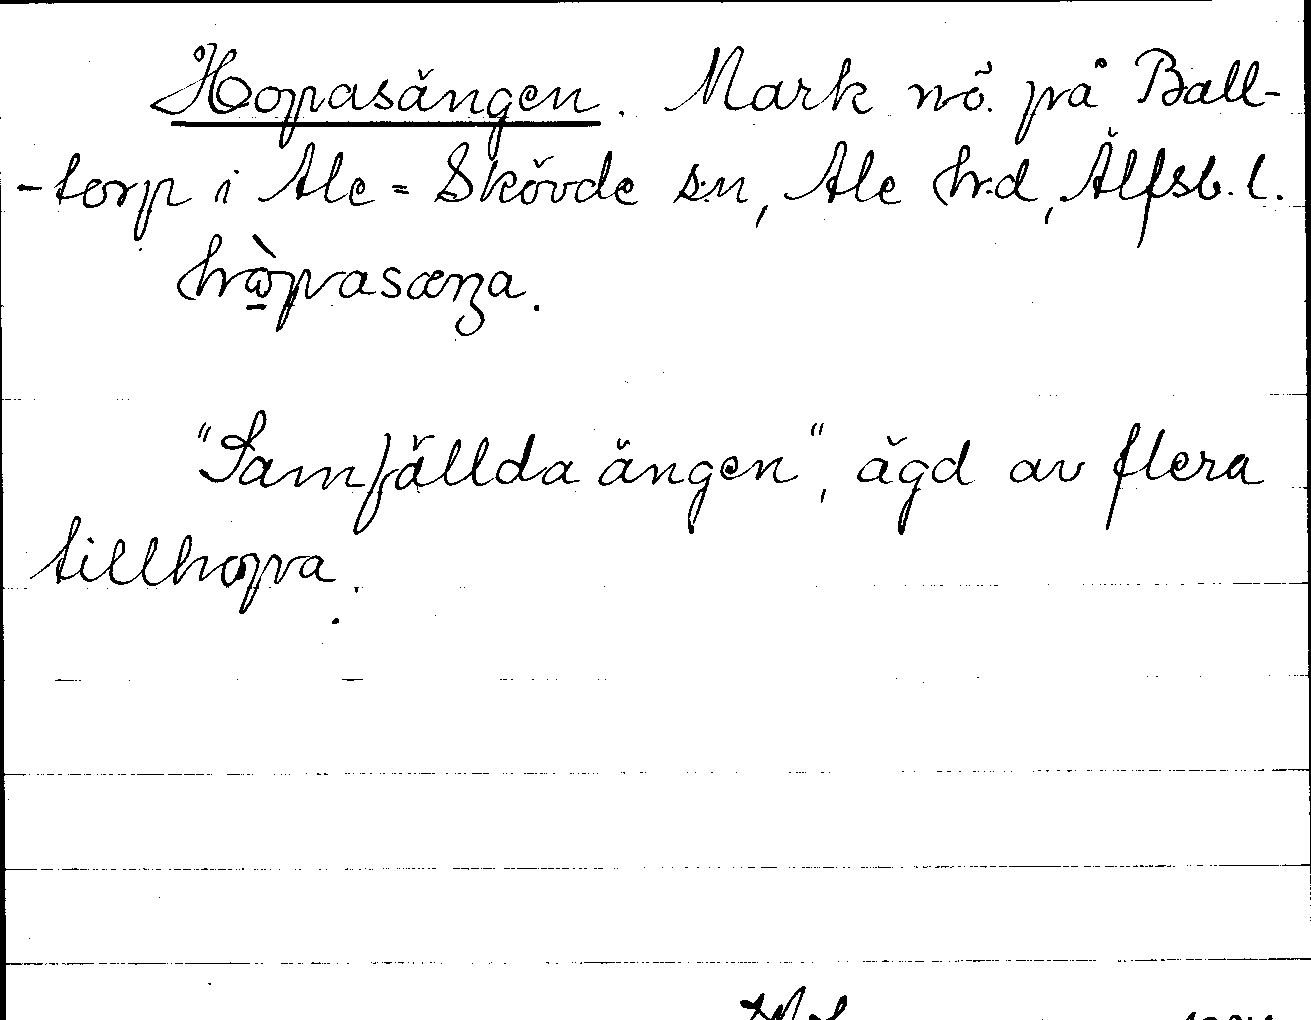 Hopasängen. Mark nö. på Ball-
-torp i Ale=Skövde s:n, Ale h:d, Älfsb. l.
hɷ̀pasæŋa.
"Samfällda ängen", ägd av flera
tillhopa.